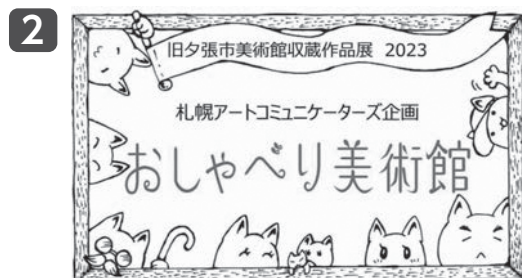 2
旧夕張市美術館収蔵作品展 2023
札幌アートコミュニケーターズ企画
おしゃべり美術館